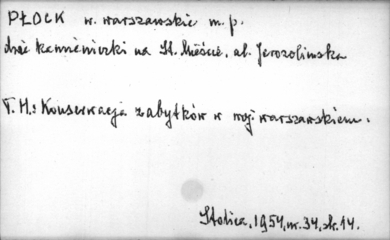 PŁOCK w. warszawskie m. p.
dwie kamieniczki na St. Mieście, ul. Jerozolimska
T. H.: Konserwacja zabytków w woj. warszawskiem.
Stolica, 1954, nr. 34, str. 14.